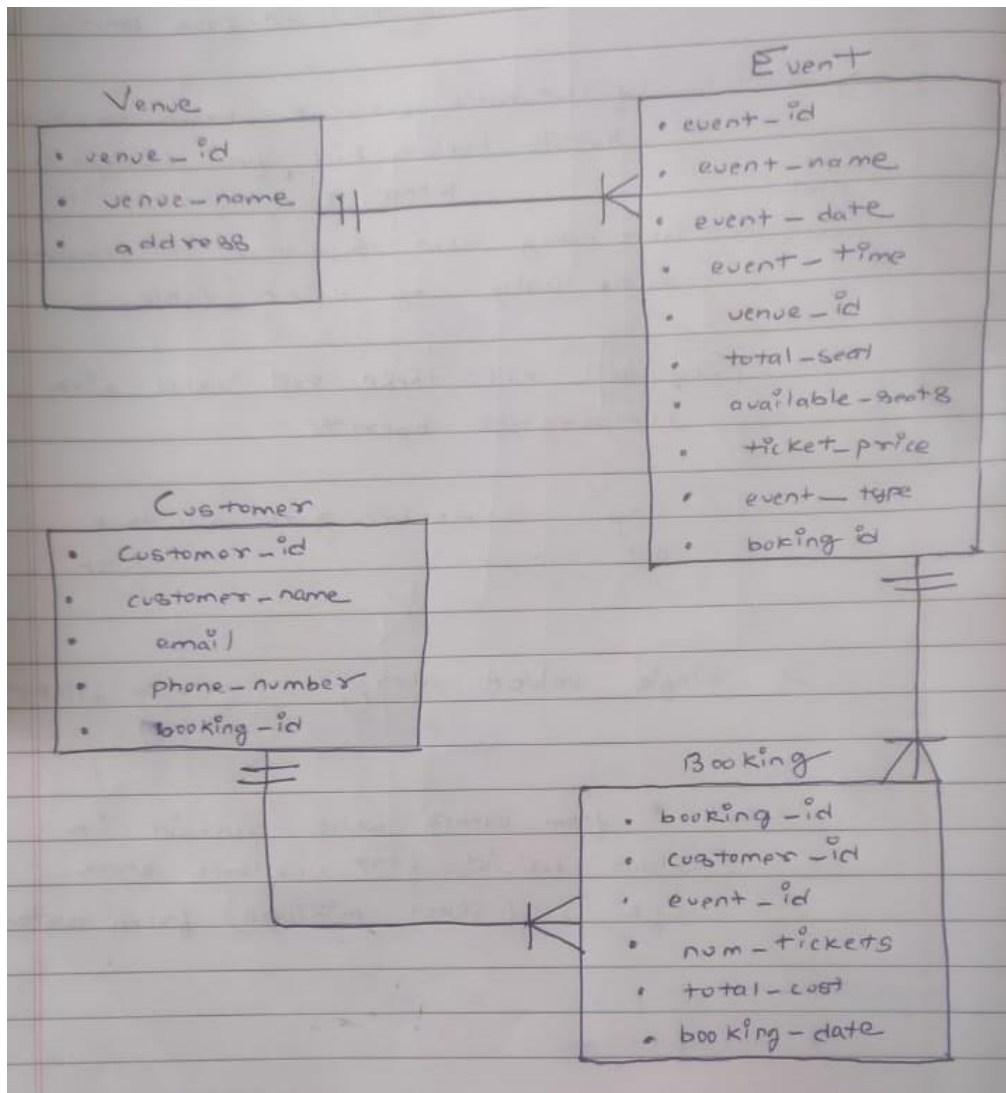 Venue
• venue_id
• venue-name
• address
Event
• event-id
• event-name
• event-date
• event-time
• venue_id
• total-seat
• available-seats
• ticket_price
• event_type
• boking id
Customer
• Customer_id
• customer-name
• email
• phone-number
• booking-id
Booking
• booking-id
• customer-id
• event-id
• num-tickets
• total-cost
• booking-date